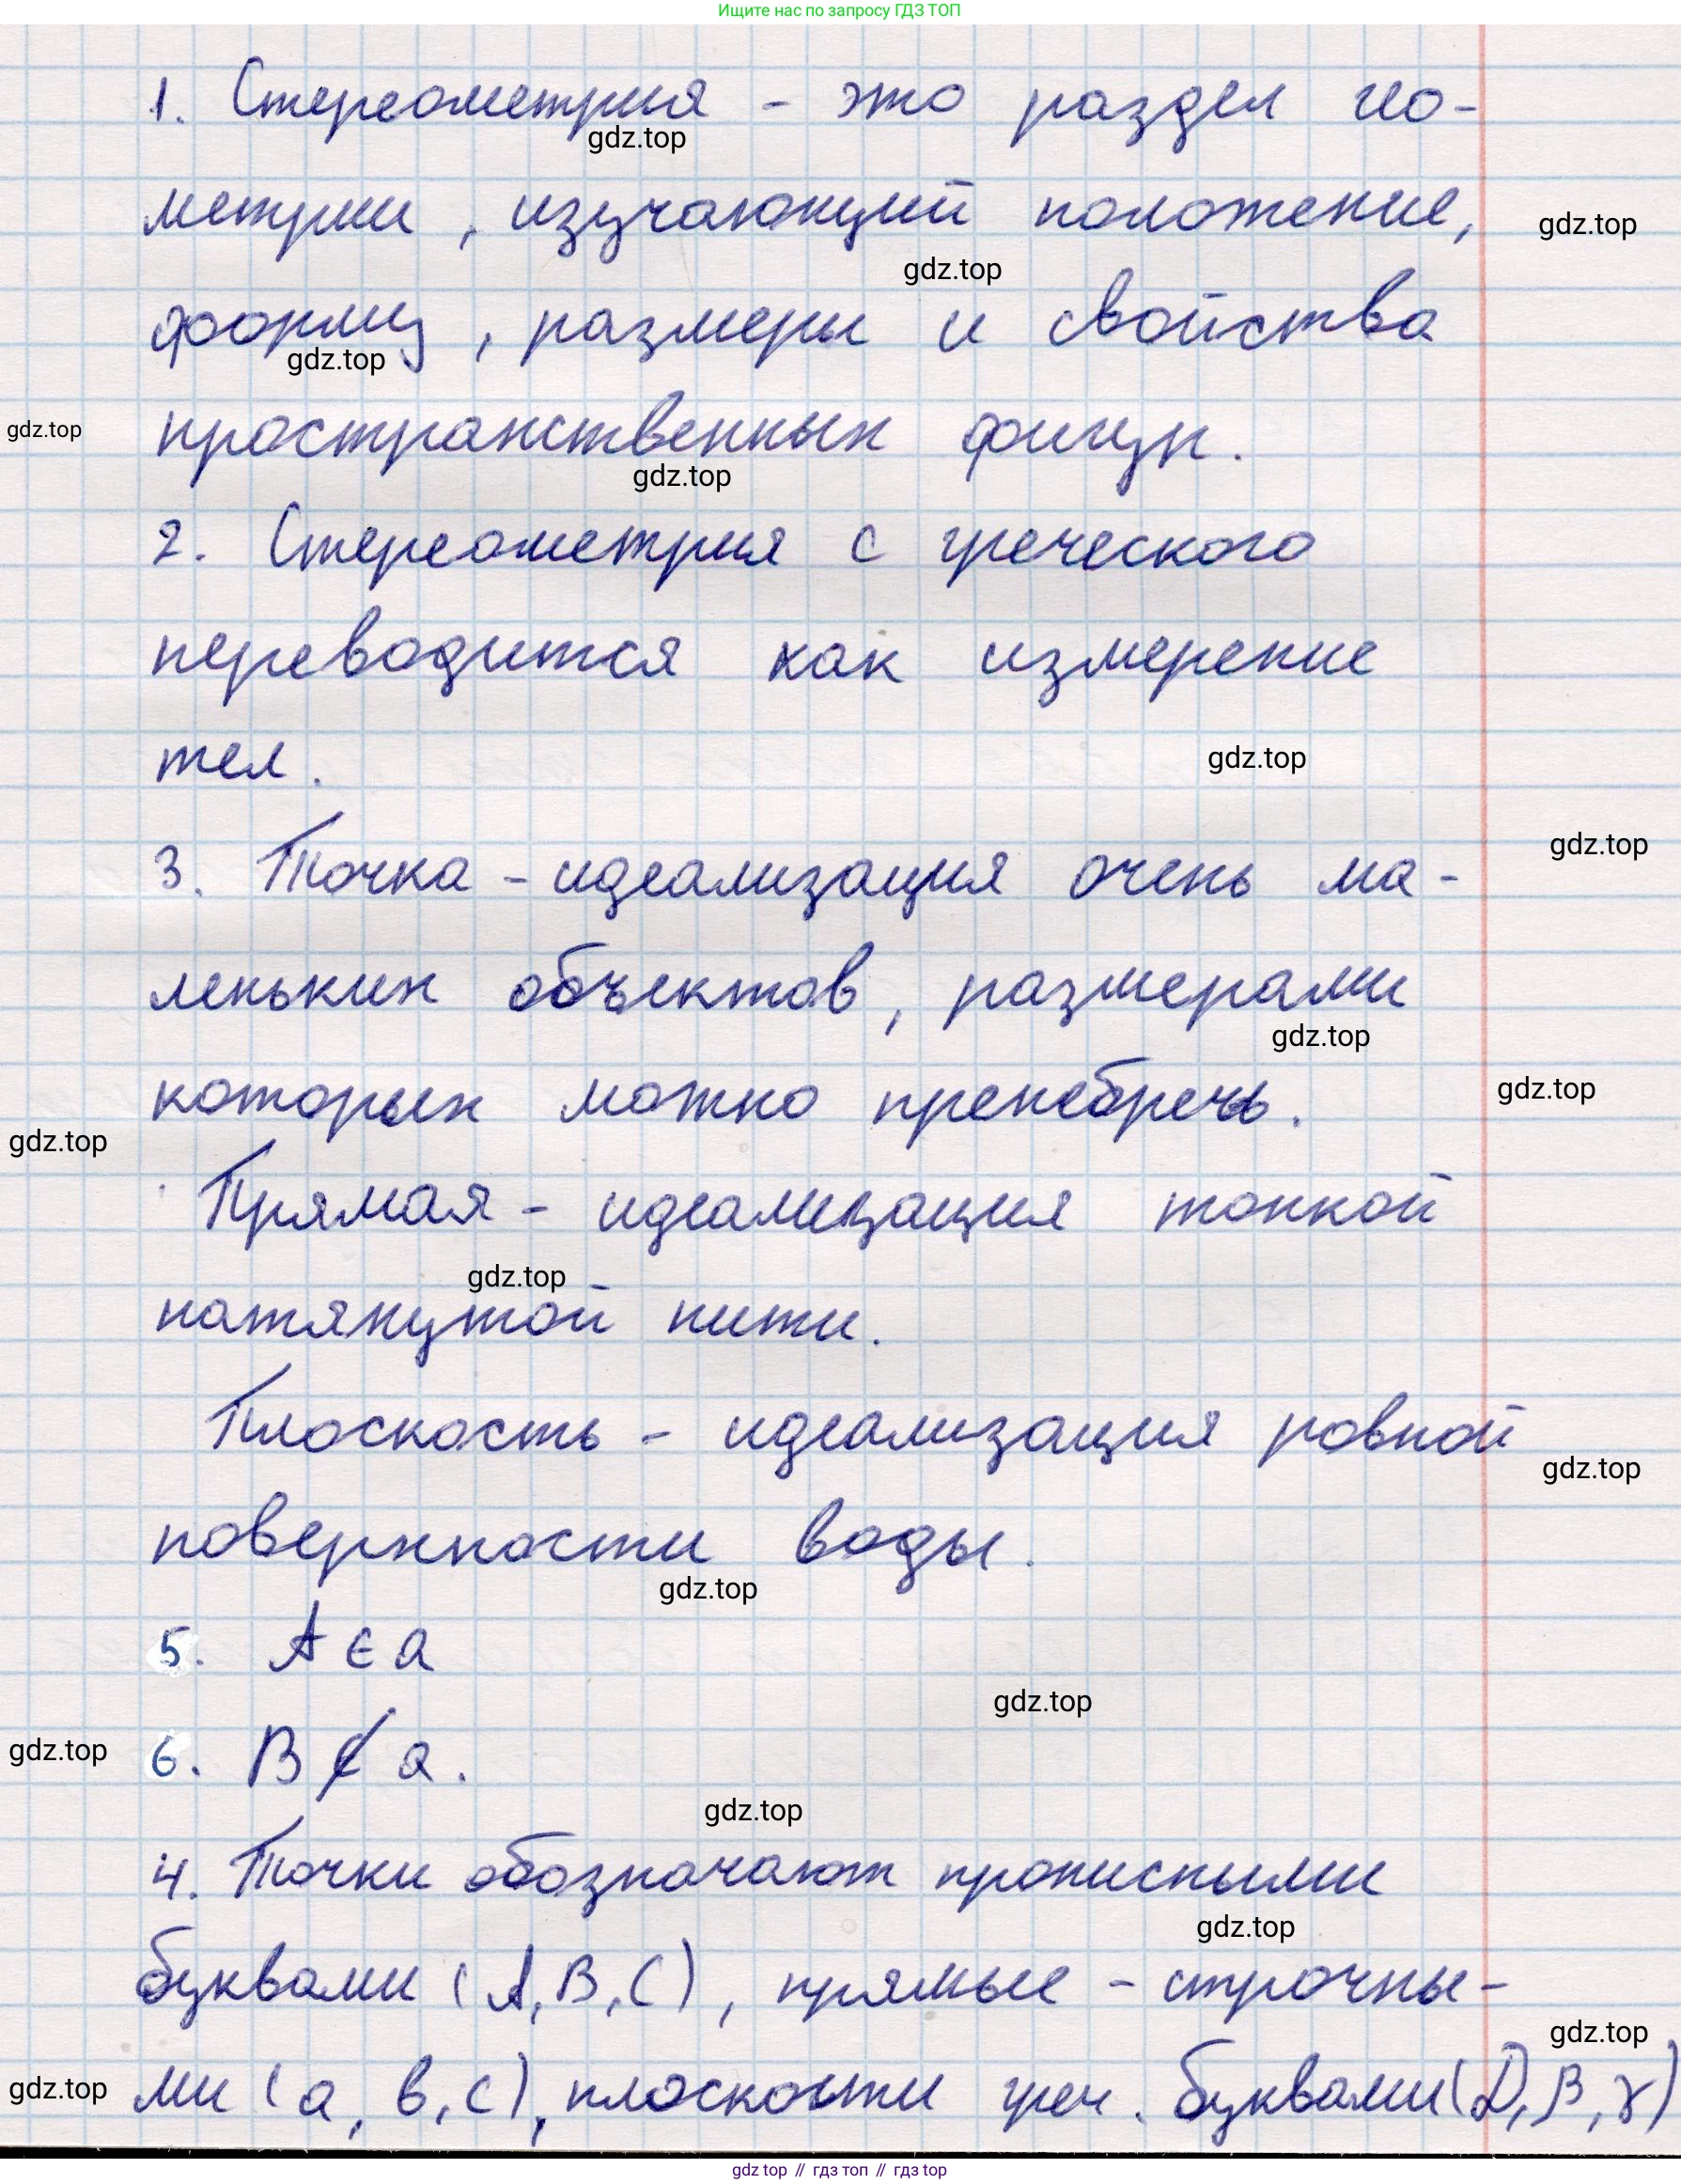 Ищите нас по запросу ГДЗ ТОП
1. Стереометрия - это раздел гео-
gdz.top
метрии, изучающий положение,
gdz.top
gdz.top
форму, размеры и свойства
gdz.top
gdz.top
пространственных фигур.
gdz.top
2. Стереометрия с греческого
переводится как измерение
тел.
gdz.top
3. Точка - идеализация очень ма-
gdz.top
леньких объектов, размерами
gdz.top
которых можно пренебречь.
gdz.top
gdz.top
Прямая - идеализация тонкой
gdz.top
натянутой нити.
Плоскость - идеализация ровной
gdz.top
поверхности воды.
gdz.top
5. A ∈ a
gdz.top
gdz.top
6. B ∉ a.
gdz.top
4. Точки обозначают прописными
gdz.top
буквами (A, B, C), прямые - строчны-
gdz.top
gdz.top
ми (a, в, c), плоскости греч. буквами (, β, γ)
gdz top // гдз топ // гдз top